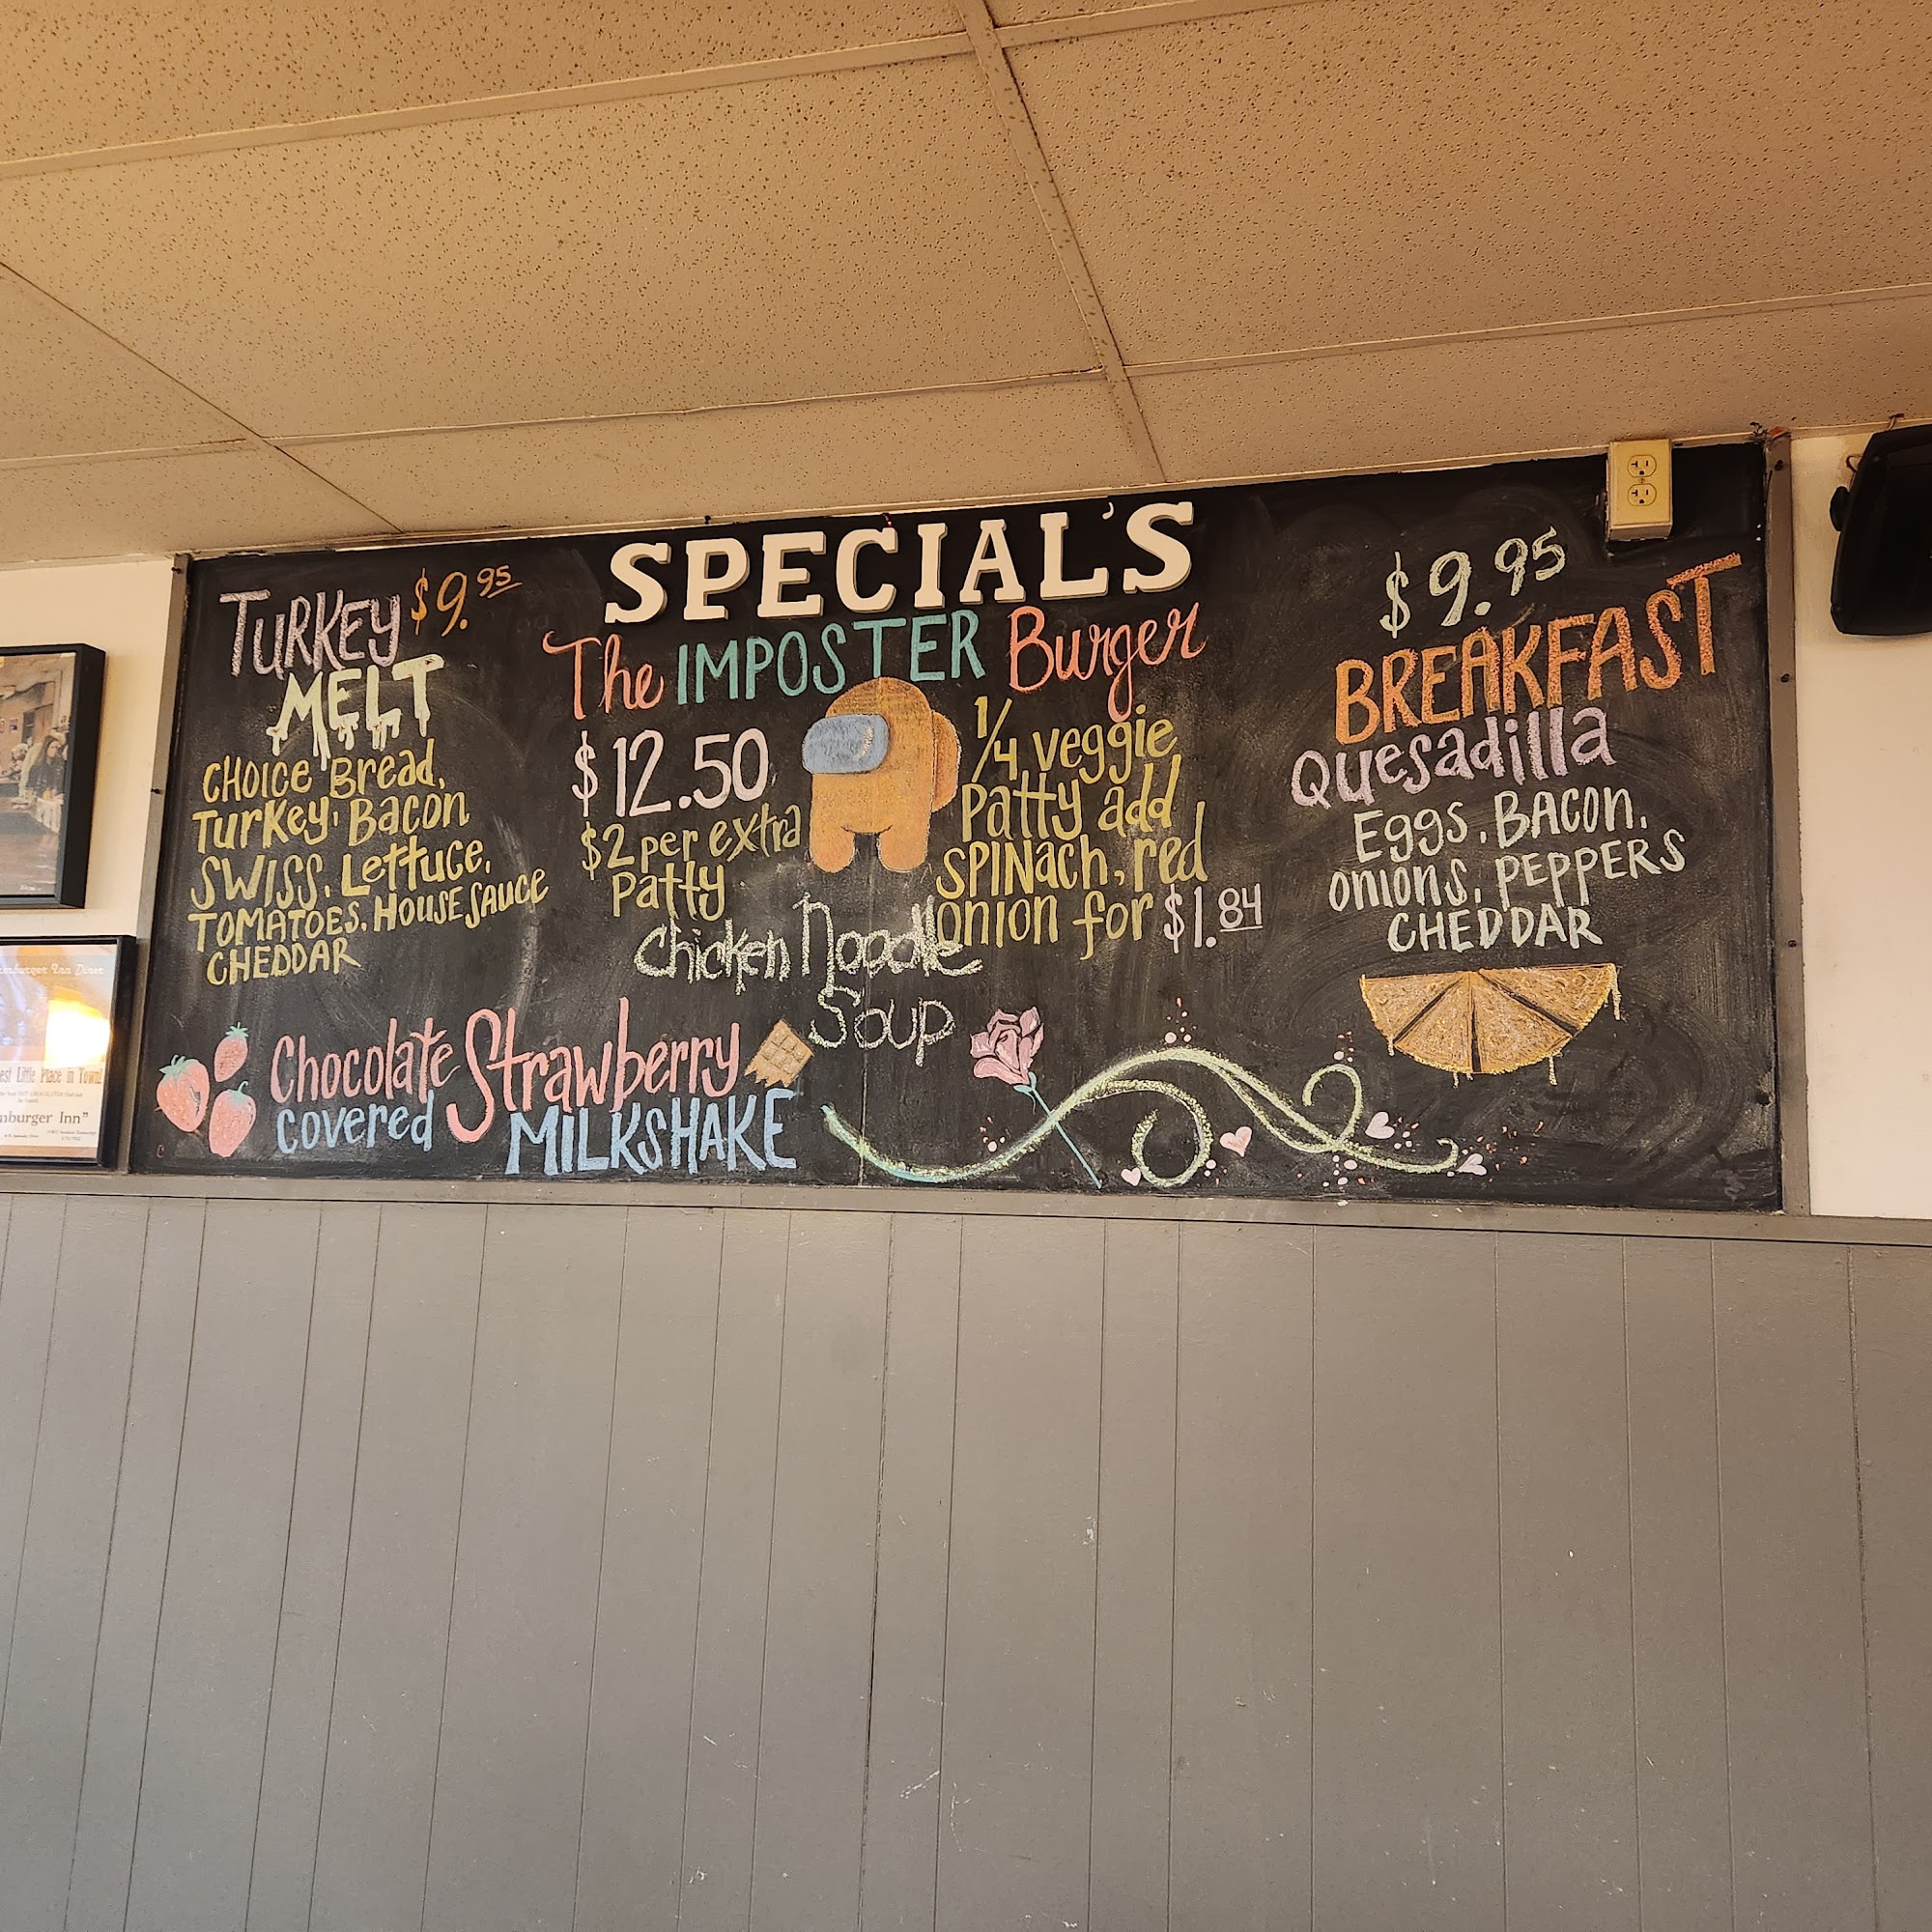 SPECIAL'S
TURKEY $9.95
MELT
CHOICE Bread,
Turkey, Bacon
SWISS, Lettuce,
TOMATOES, HOUSE SAUCE
CHEDDAR
The IMPOSTER Burger
$12.50
$2 per extra
Patty
1/4 veggie
Patty add
SPINach, red
onion for $1.84
Chicken Noodle
Soup
$9.95
BREAKFAST
Quesadilla
Eggs, BACON,
onions, PEPPERS
CHEDDAR
Chocolate Strawberry
covered MILKSHAKE
mburger Inn Diner
est Little Place in Town!
mburger Inn"